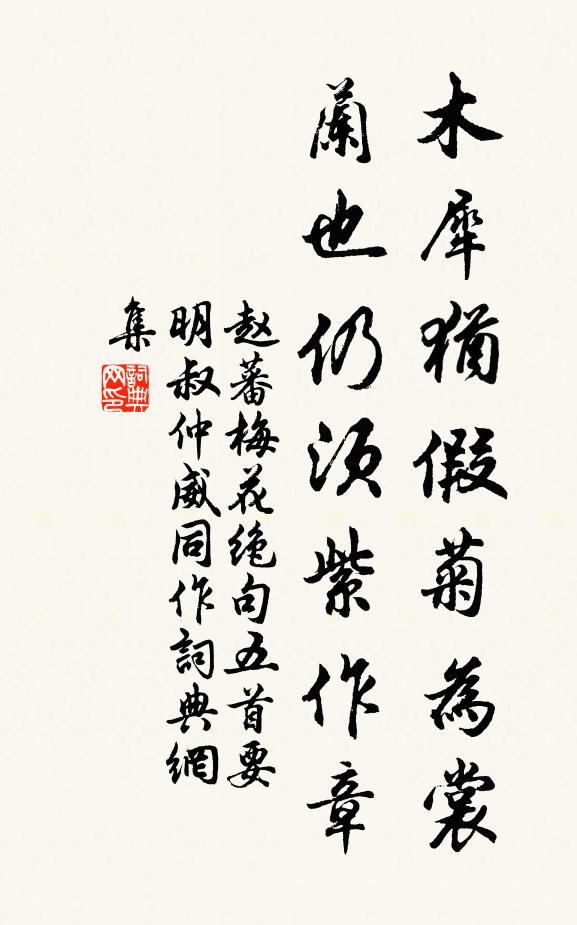 木犀猶假菊為裳
蘭也仍須紫作章
赵蕃梅花絶句五首要
明叔仲威同作詞典網
集
詞典
网印